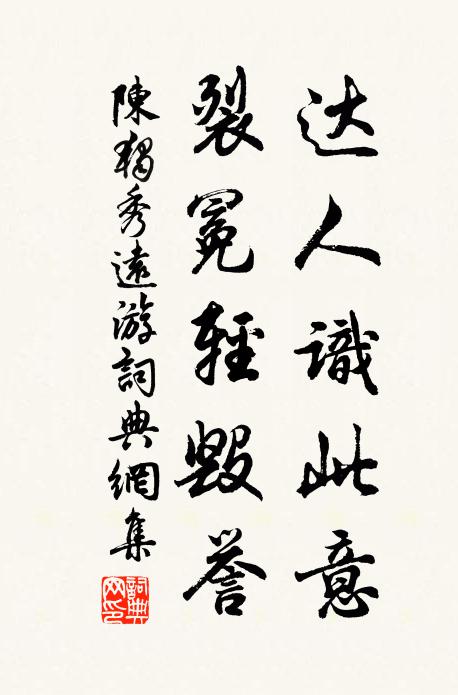 达人識此意
裂冕輕毀誉
陳獨秀遠游詞典網集
詞典网印